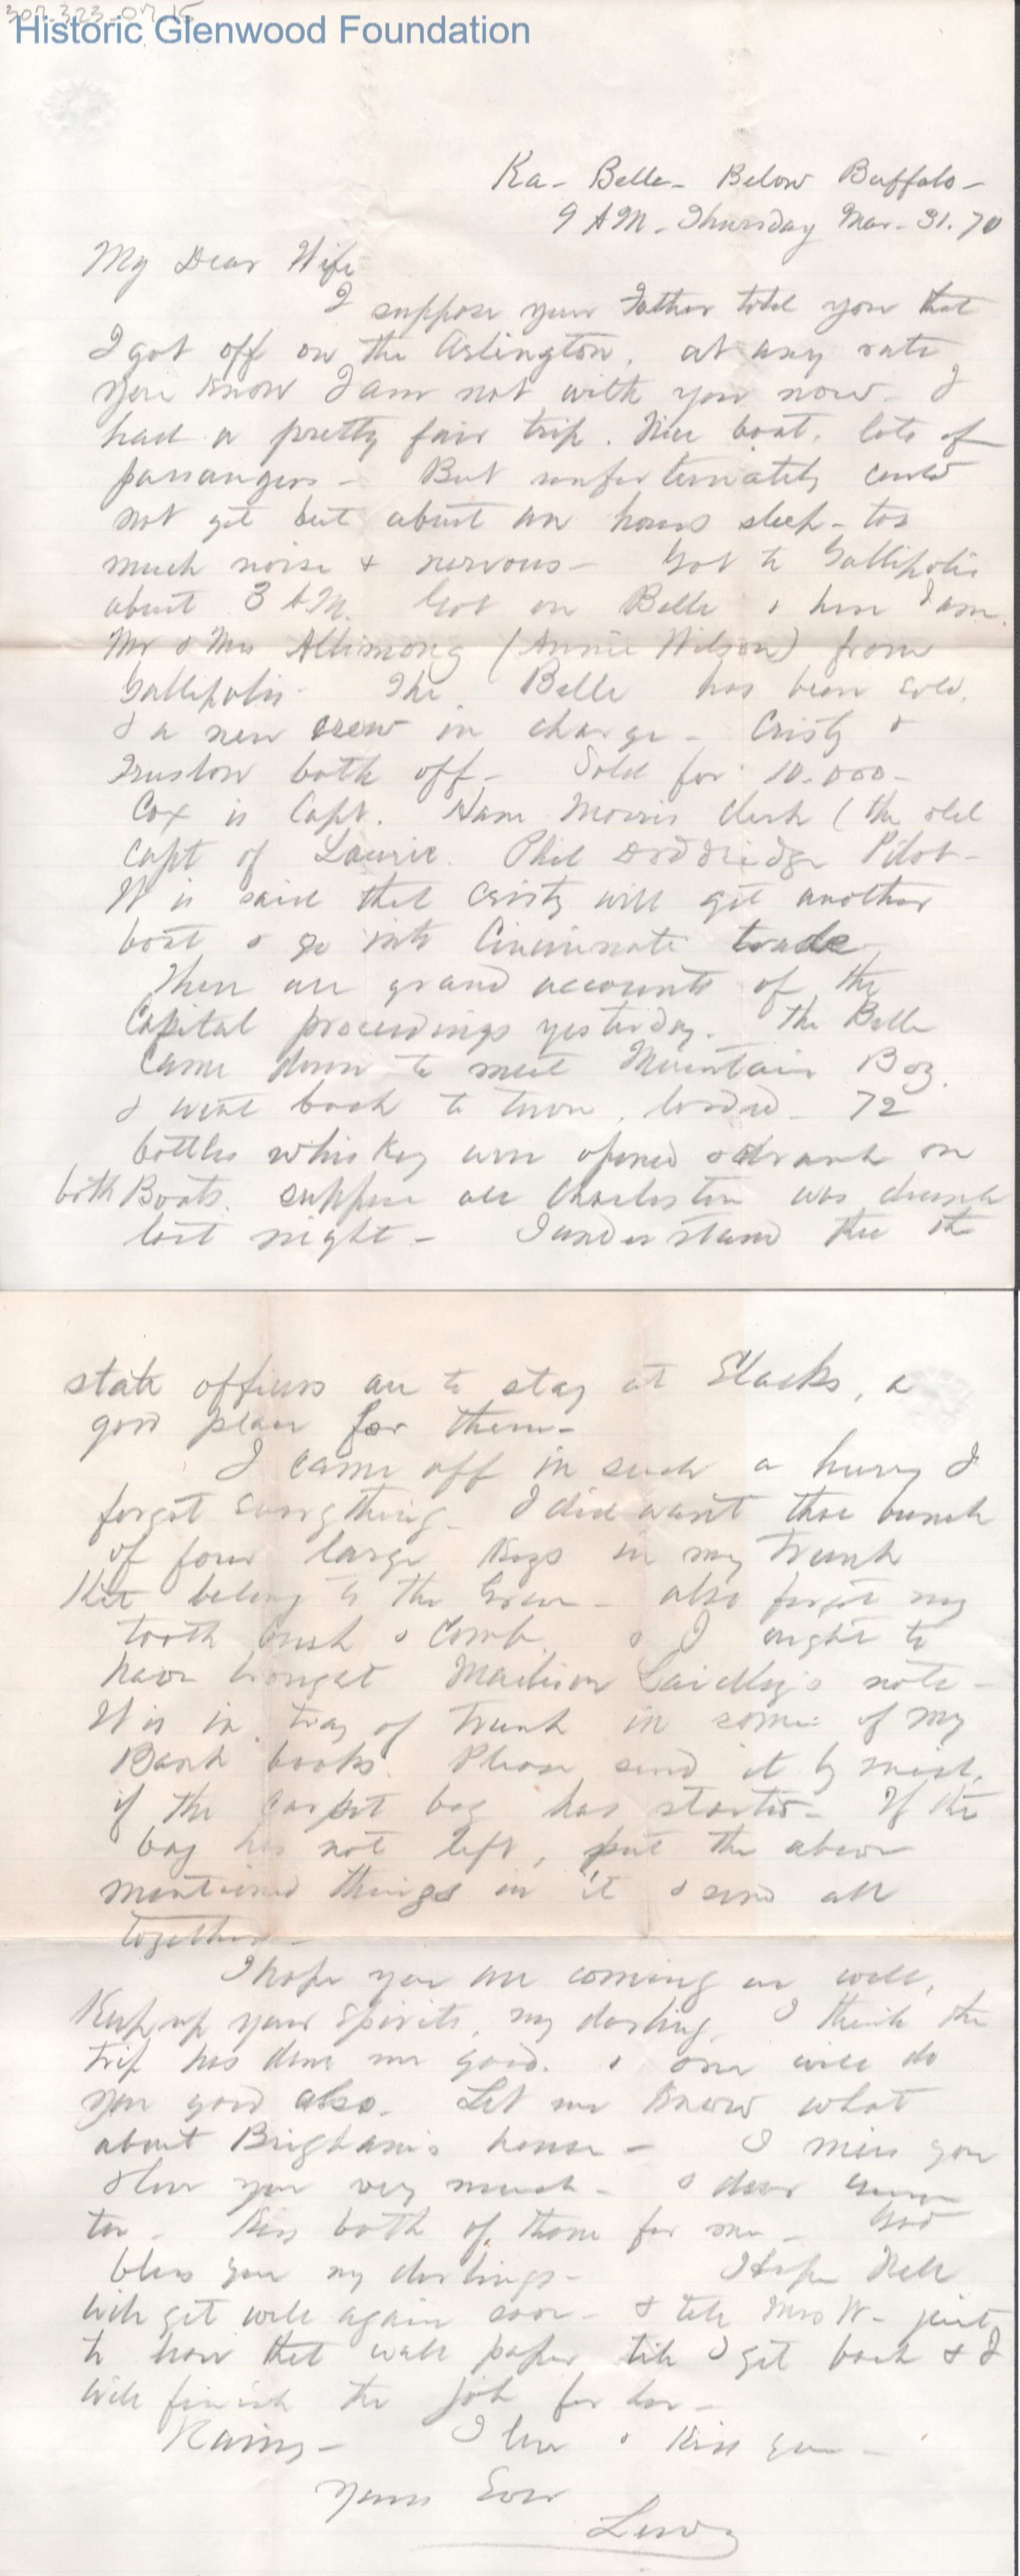 307-323-07-15
Historic Glenwood Foundation
Ka- Belle- Below Buffalo-
9 AM- Thursday Mar- 31. 70
My Dear Wife
I suppose your Father told you that
I got off on the Arlington. at any rate
you know I am not with you now- I
had a pretty fair trip. Nice boat, lots of
passangers- But unfortunately could
not get but about an hours sleep- too
much noise & nervous- Got to Gallipolis
about 3 AM. Got on Belle & here I am.
Mr & Mrs Allimong (Annie Wilson) from
Gallipolis- The Belle has been sold.
& a new crew in charge- Cristy &
Truslow both off- Sold for 10.000-
Cox is Capt. Ham Morris clerk (the old
Capt of Laurie. Phil Doddridge Pilot-
It is said that Cristy will get another
boat & go into Cincinnate trade
There are grand accounts of the
Capital proceedings yesterday. The Belle
came down to meet Mountain Boy.
& went back to town, loaded- 72
bottles whiskey were opened & drank on
both Boats. suppose all Charleston was drunk
last night- I understand the
state officers are to stay at Slacks, a
good place for them-
I came off in such a hurry I
forgot everything- I did want thee bunch
of four large Keys in my Trunk
that belong to the - also forgot my
tooth brush & Comb. & I ought to
have brought Madison Laidley's note-
It is in tray of Trunk in some of my
Bank books. Please send it by mail,
if the carpet bag has started- If the
bag has not left, put the above
mentioned things in it & send all
together-
I hope you are coming on well,
Keep up your spirits, my darling. I think the
trip has done me good. & one will do
you good also. Let me know what
about Brigham's house- I miss you
& love you very much- & dear
too- Kiss both of them for me- God
bless you my darlings- Hope Nell
will get well again soon- & tell Mrs W- just
to have that wall paper till I get back & I
will finish the job for her-
Rainy- I love & Kiss you-
Yours Ever
Lewy